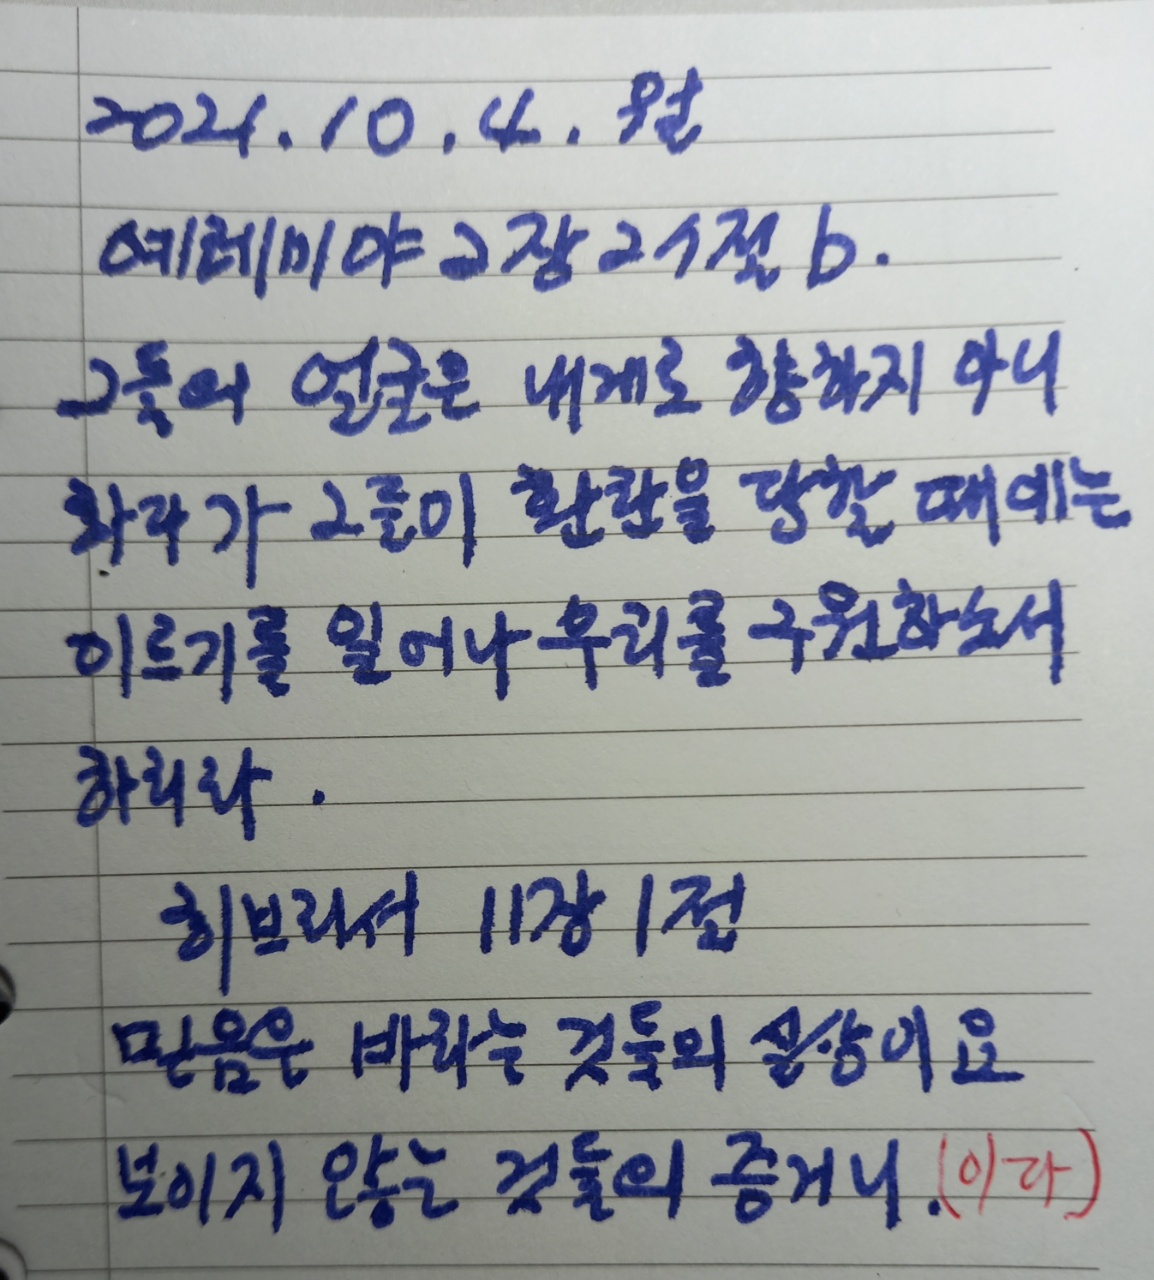 2021.10.4.월
예레미야 2장 27절 b.
그들의 얼굴은 내게로 향하지 아니
하다가 그들이 환란을 당할 때에는
이르기를 일어나 우리를 구원하소서
하리라.
히브리서 11장 1절
믿음은 바라는 것들의 실상이요
보이지 않는 것들의 증거니.(이다)